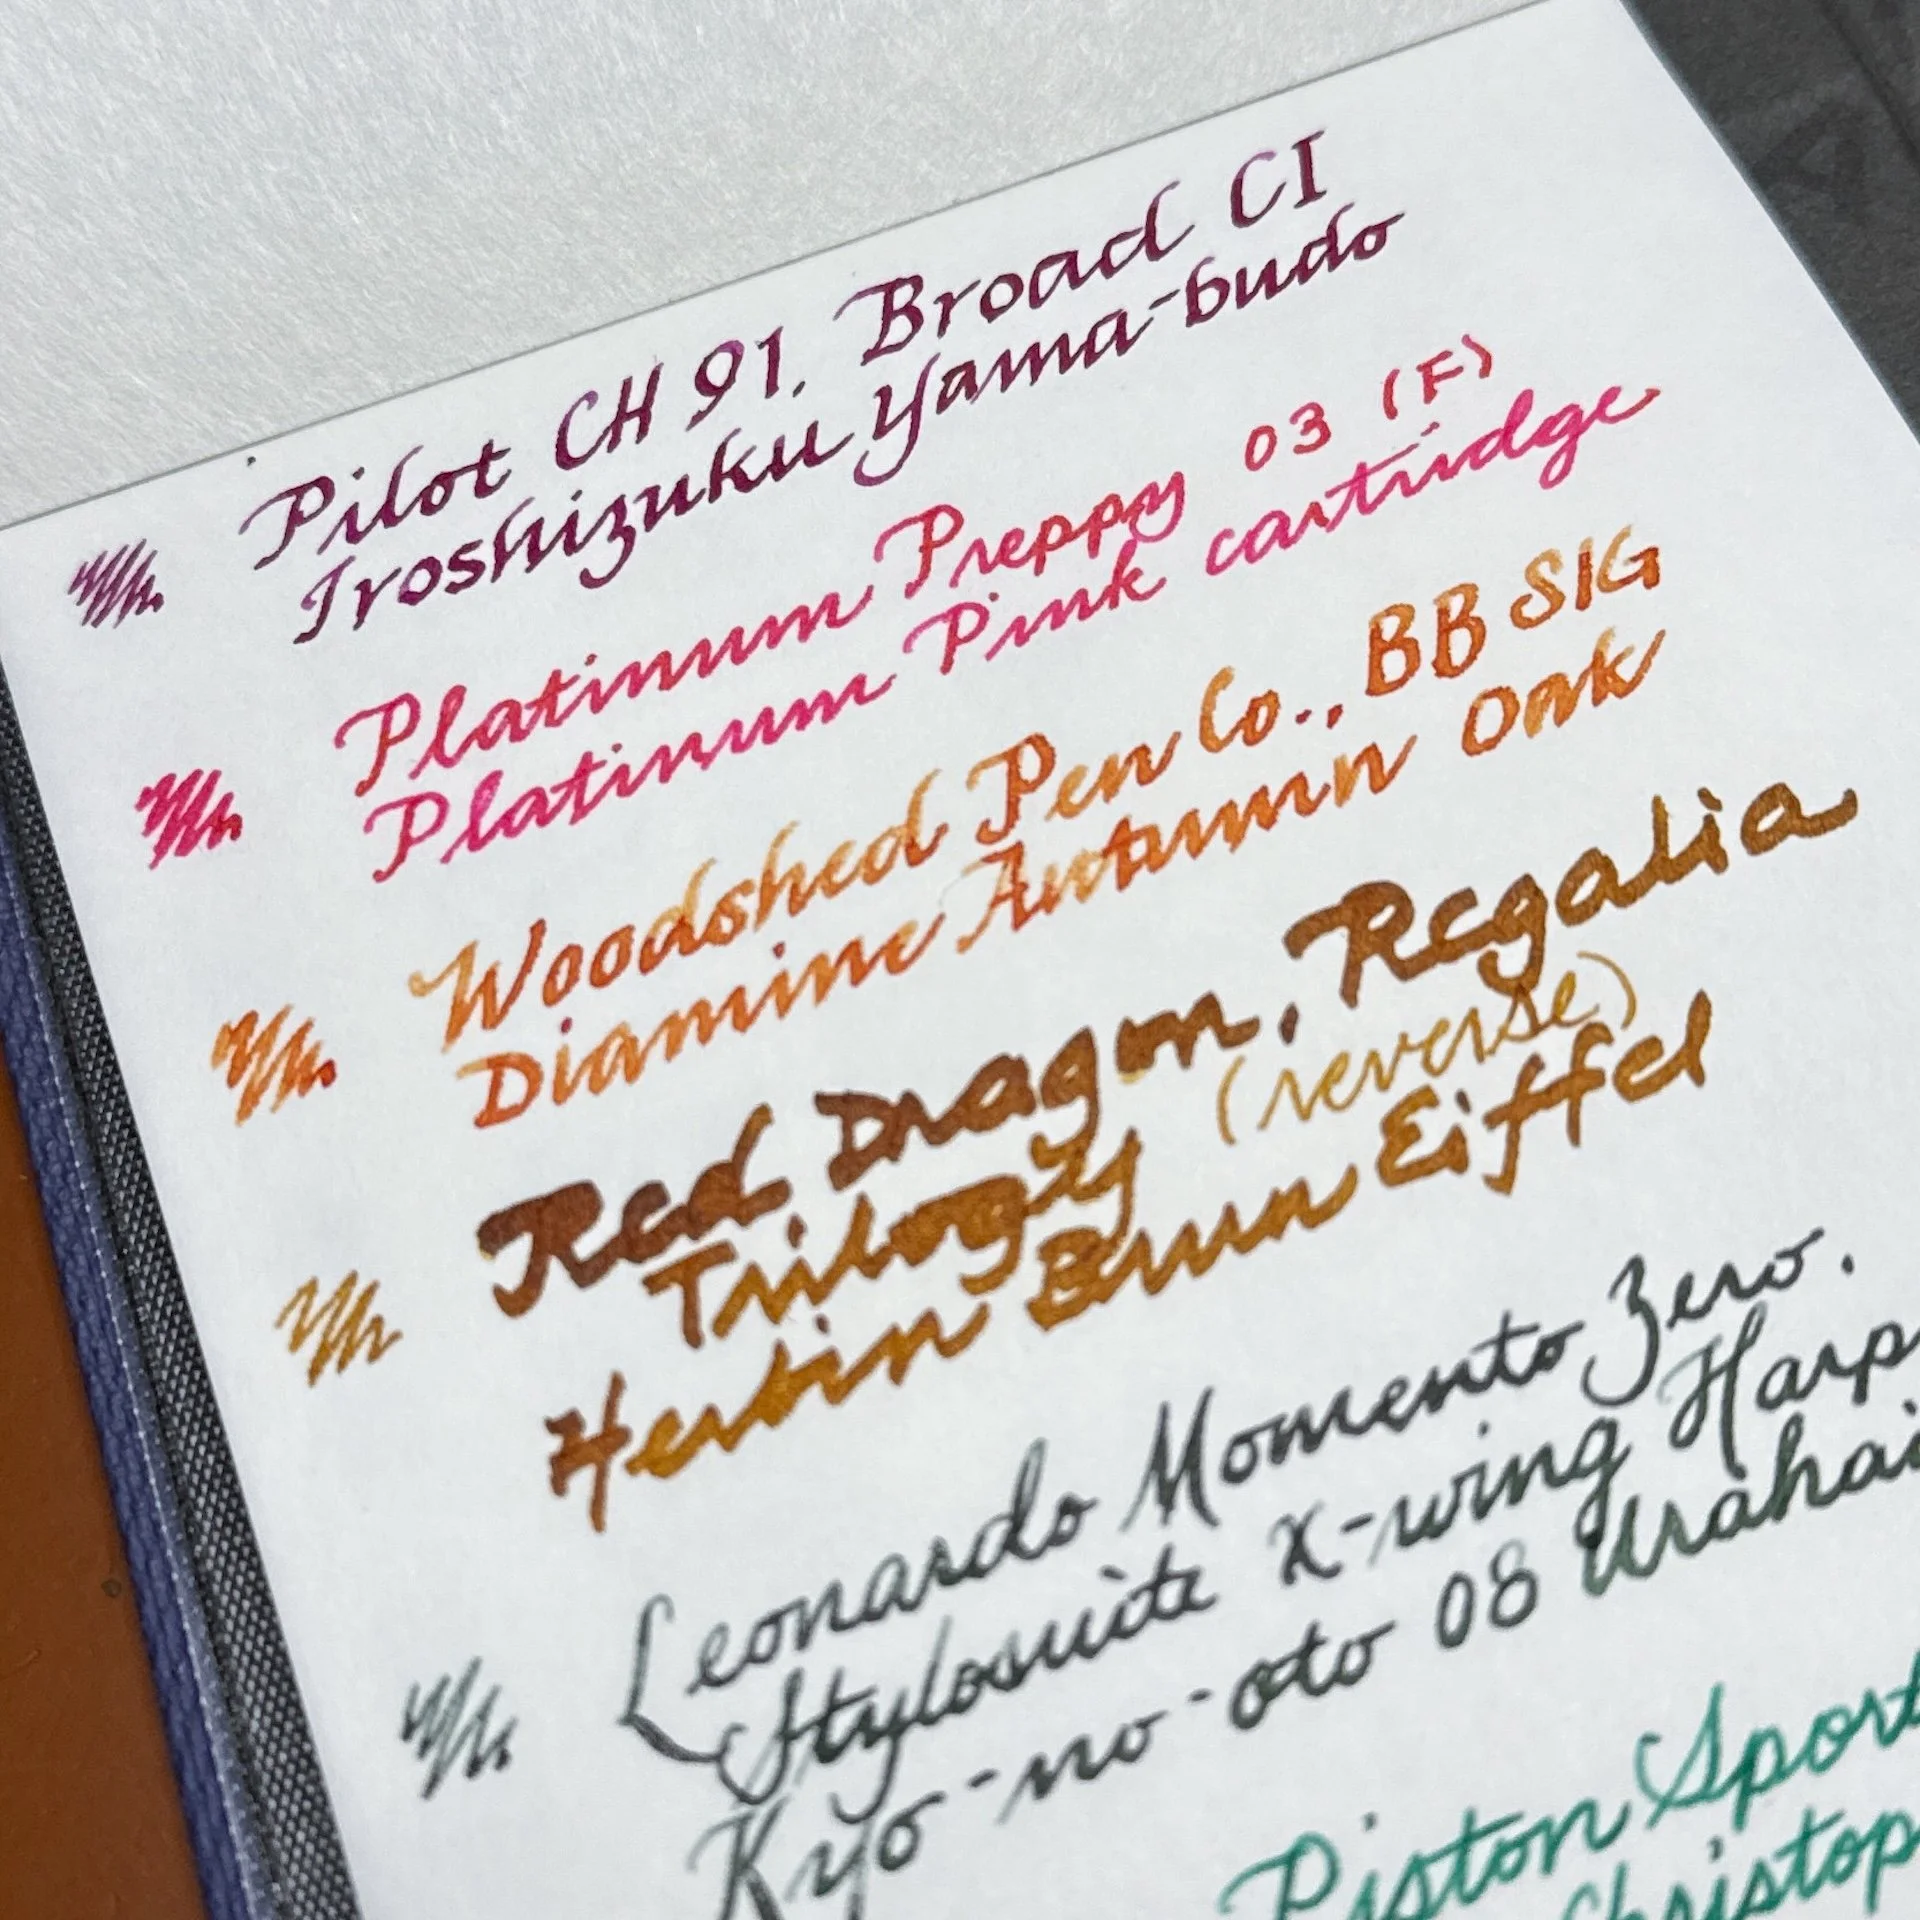 Pilot CH 91. Broad CI
Iroshizuku Yama-budo
Platinum Preppy 03 (F)
Platinum Pink cartridge
Woodshed Pen Co., BB SIG
Diamine Autumn Oak
Red Dragon, Regalia
Trilogy (reverse)
Herbin Brun Eiffel
Leonardo Momento Zero.
Stylosuite X-wing Harp
Kyo-no-oto 08 Urahai
Piston Sport
Christop